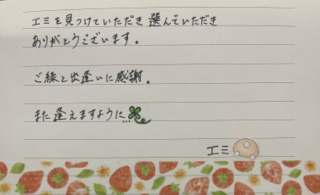 エミを見つけていただき選んでいただき
ありがとうございます。
ご縁と出逢いに感謝。
また逢えますように...
エミ